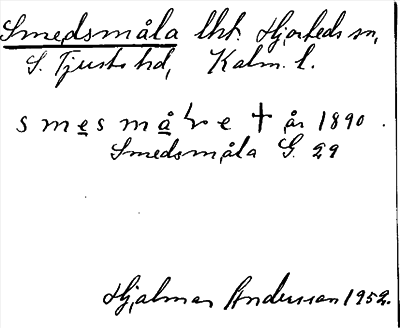 Smedsmåla lht. Hjorteds sn,
S. Tjusts hd, Kalm. l.
smesmåṙe † år 1890.
Smedsmåla G. 29
Hjalmar Andersson 1952.